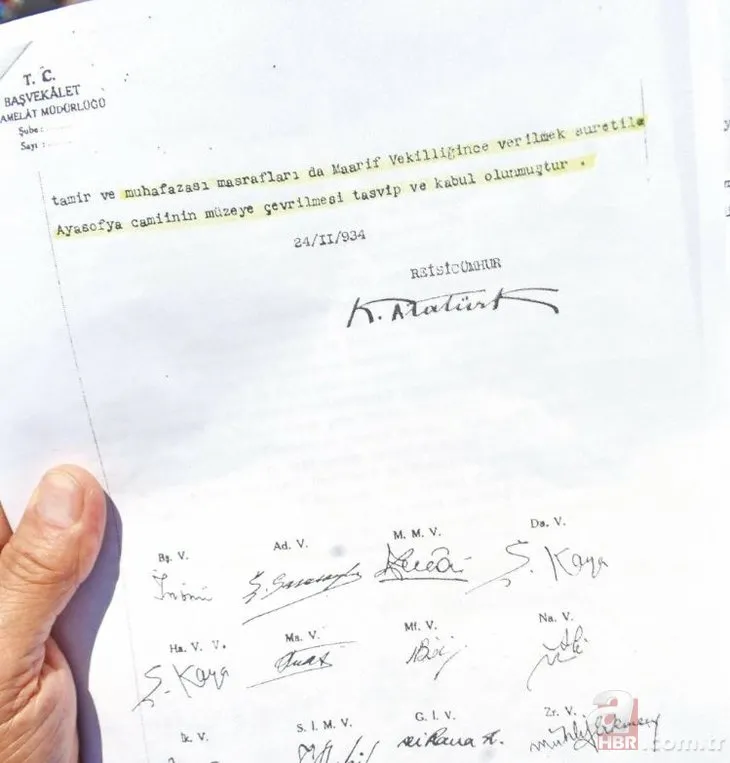 T. C.
BAŞVEKÂLET
AMELÂT MÜDÜRLÜĞÜ
Şube :
Sayı :
tamir ve muhafazası masrafları da Maarif Vekilliğince verilmek suretile
Ayasofya camiinin müzeye çevrilmesi tasvip ve kabul olunmuştur .
24/II/934
REISICÜMHUR
K. Atatürk
Bş. V. Ad. V. M. M. V. Da. V.
İnönü Ş. Kaya
Ha. V. V. Ma. V. Mf. V. Na. V.
Ş. Kaya
İk. V. S. İ. M. V. G. İ. V. Zr. V.
a
HBR.com.tr